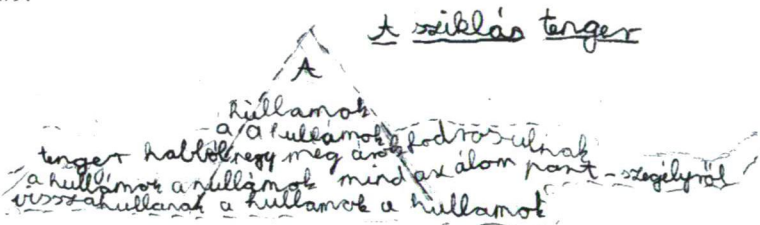 A sziklás tenger
A
hullamok
a a hullámok fodrosulnak
tenger habból, egy még
a hullámok a hullámok mind az álom part-szegélyről
visszahullanak a hullamok a hullamok